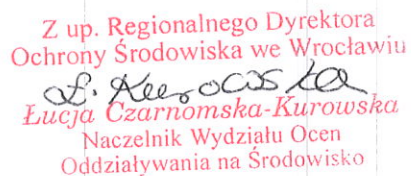 Z up. Regionalnego Dyrektora
Ochrony Środowiska we Wrocławiu
Łucja Czarnomska-Kurowska
Naczelnik Wydziału Ocen
Oddziaływania na Środowisko